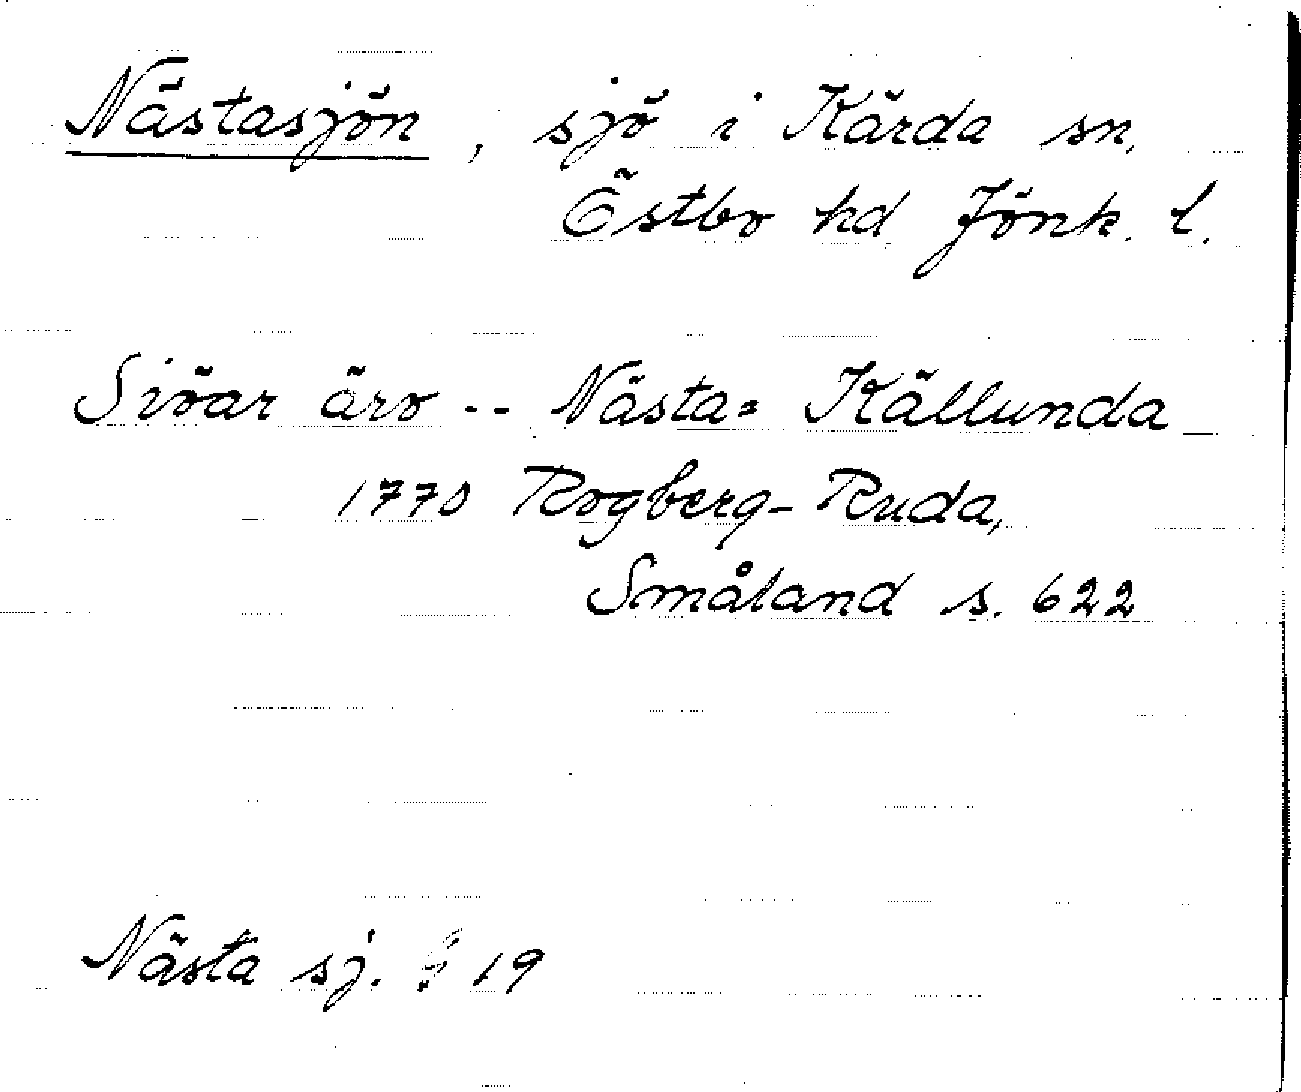 Nästasjön, sjö i Kärda sn,
Östbo hd Jönk. l.
Siöar äro -- Nästa= Källunda_
1770 Rogberg-Ruda,
Småland s. 622
Nästa sj. § 19